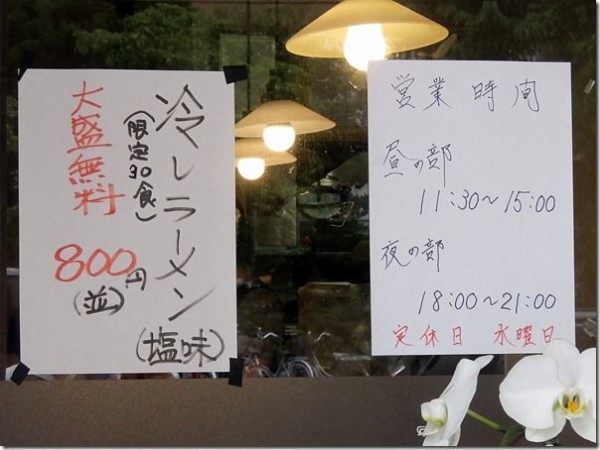 冷しラーメン
(塩味)
(限定30食)
大盛無料
800円
(並)
営業時間
昼の部
11:30~15:00
夜の部
18:00~21:00
定休日 水曜日